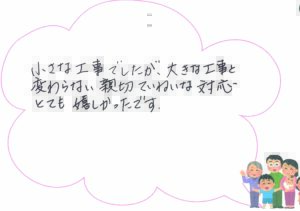 小さな工事でしたが、大きな工事と
変わらない親切ていねいな対応
とても嬉しかったです。